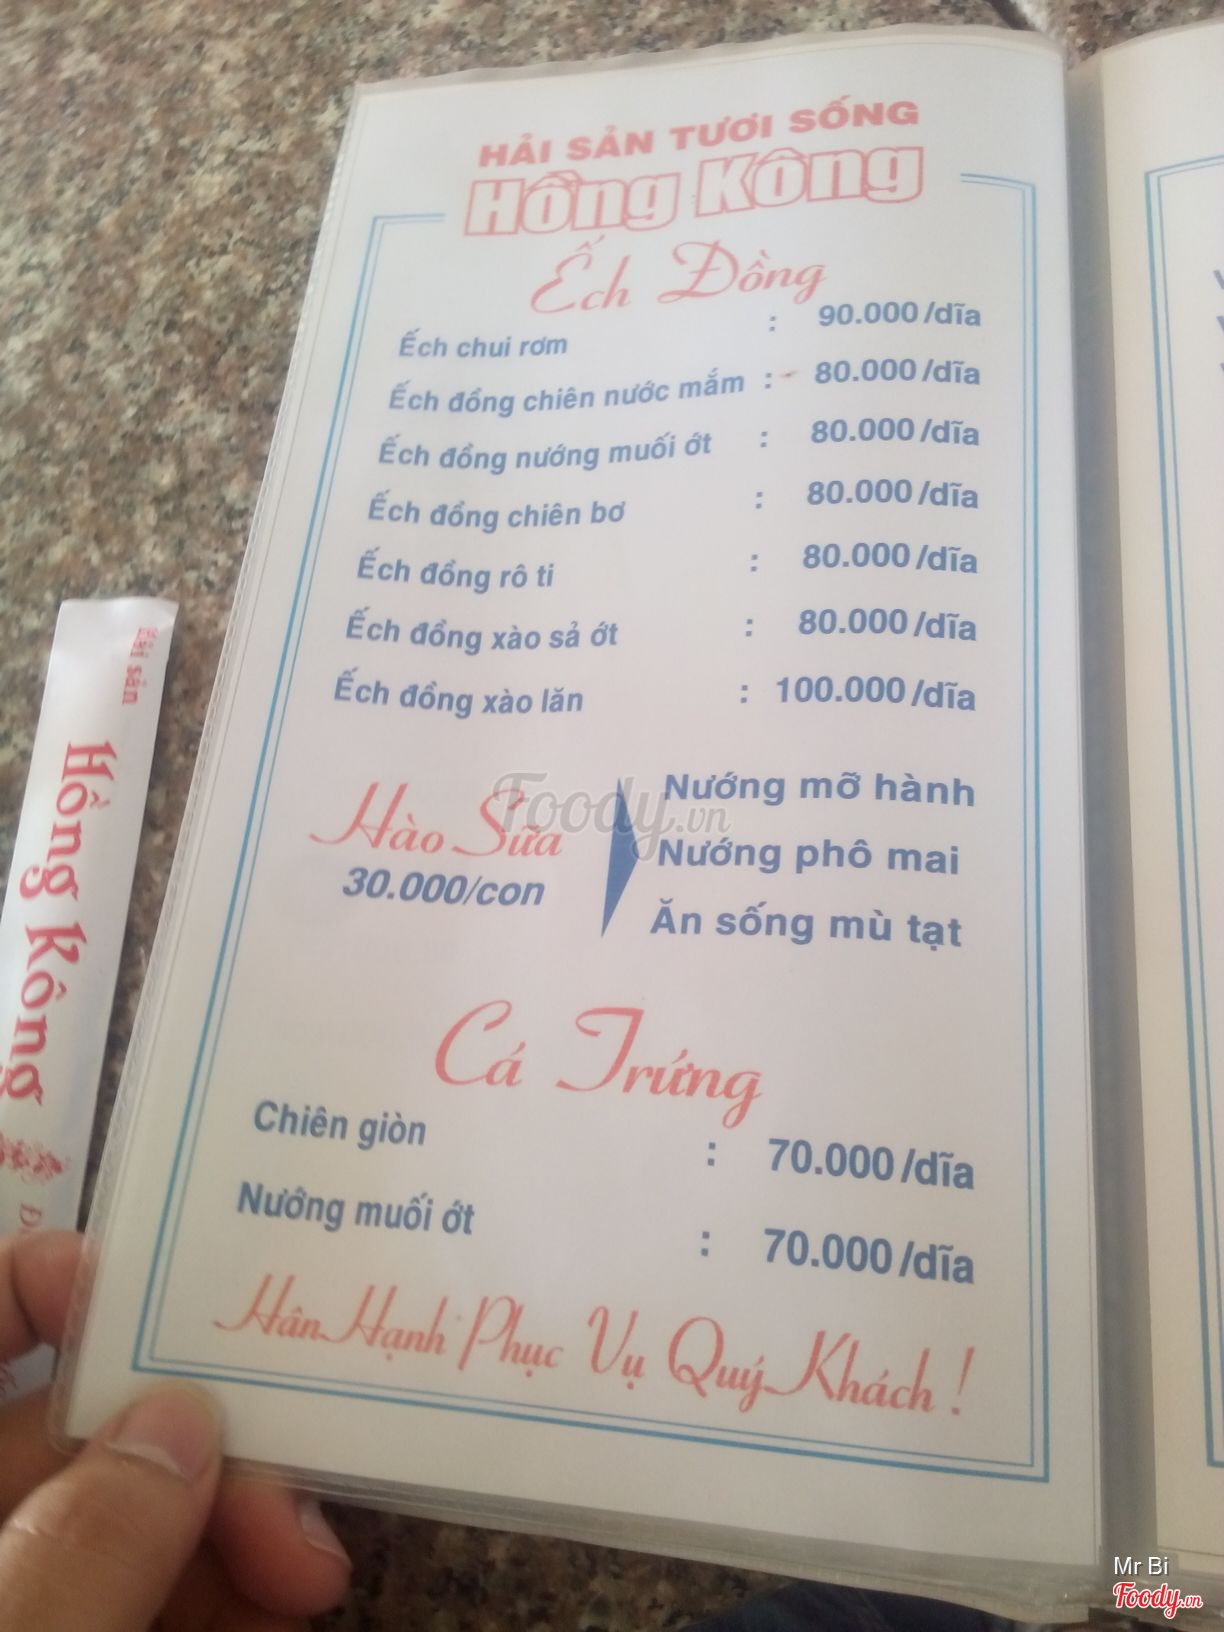 HẢI SẢN TƯƠI SỐNG
Hồng Kông
Ếch Đồng
Ếch chui rơm : 90.000/dĩa
Ếch đồng chiên nước mắm : 80.000/dĩa
Ếch đồng nướng muối ớt : 80.000/dĩa
Ếch đồng chiên bơ : 80.000/dĩa
Ếch đồng rô ti : 80.000/dĩa
Ếch đồng xào sả ớt : 80.000/dĩa
Ếch đồng xào lăn : 100.000/dĩa
Hào Sữa
30.000/con
Nướng mỡ hành
Nướng phô mai
Ăn sống mù tạt
Cá Trứng
Chiên giòn : 70.000/dĩa
Nướng muối ớt : 70.000/dĩa
Hân Hạnh Phục Vụ Quý Khách !
Hải sản
Hồng Kông
Foody.vn
Mr Bi
Foody.vn